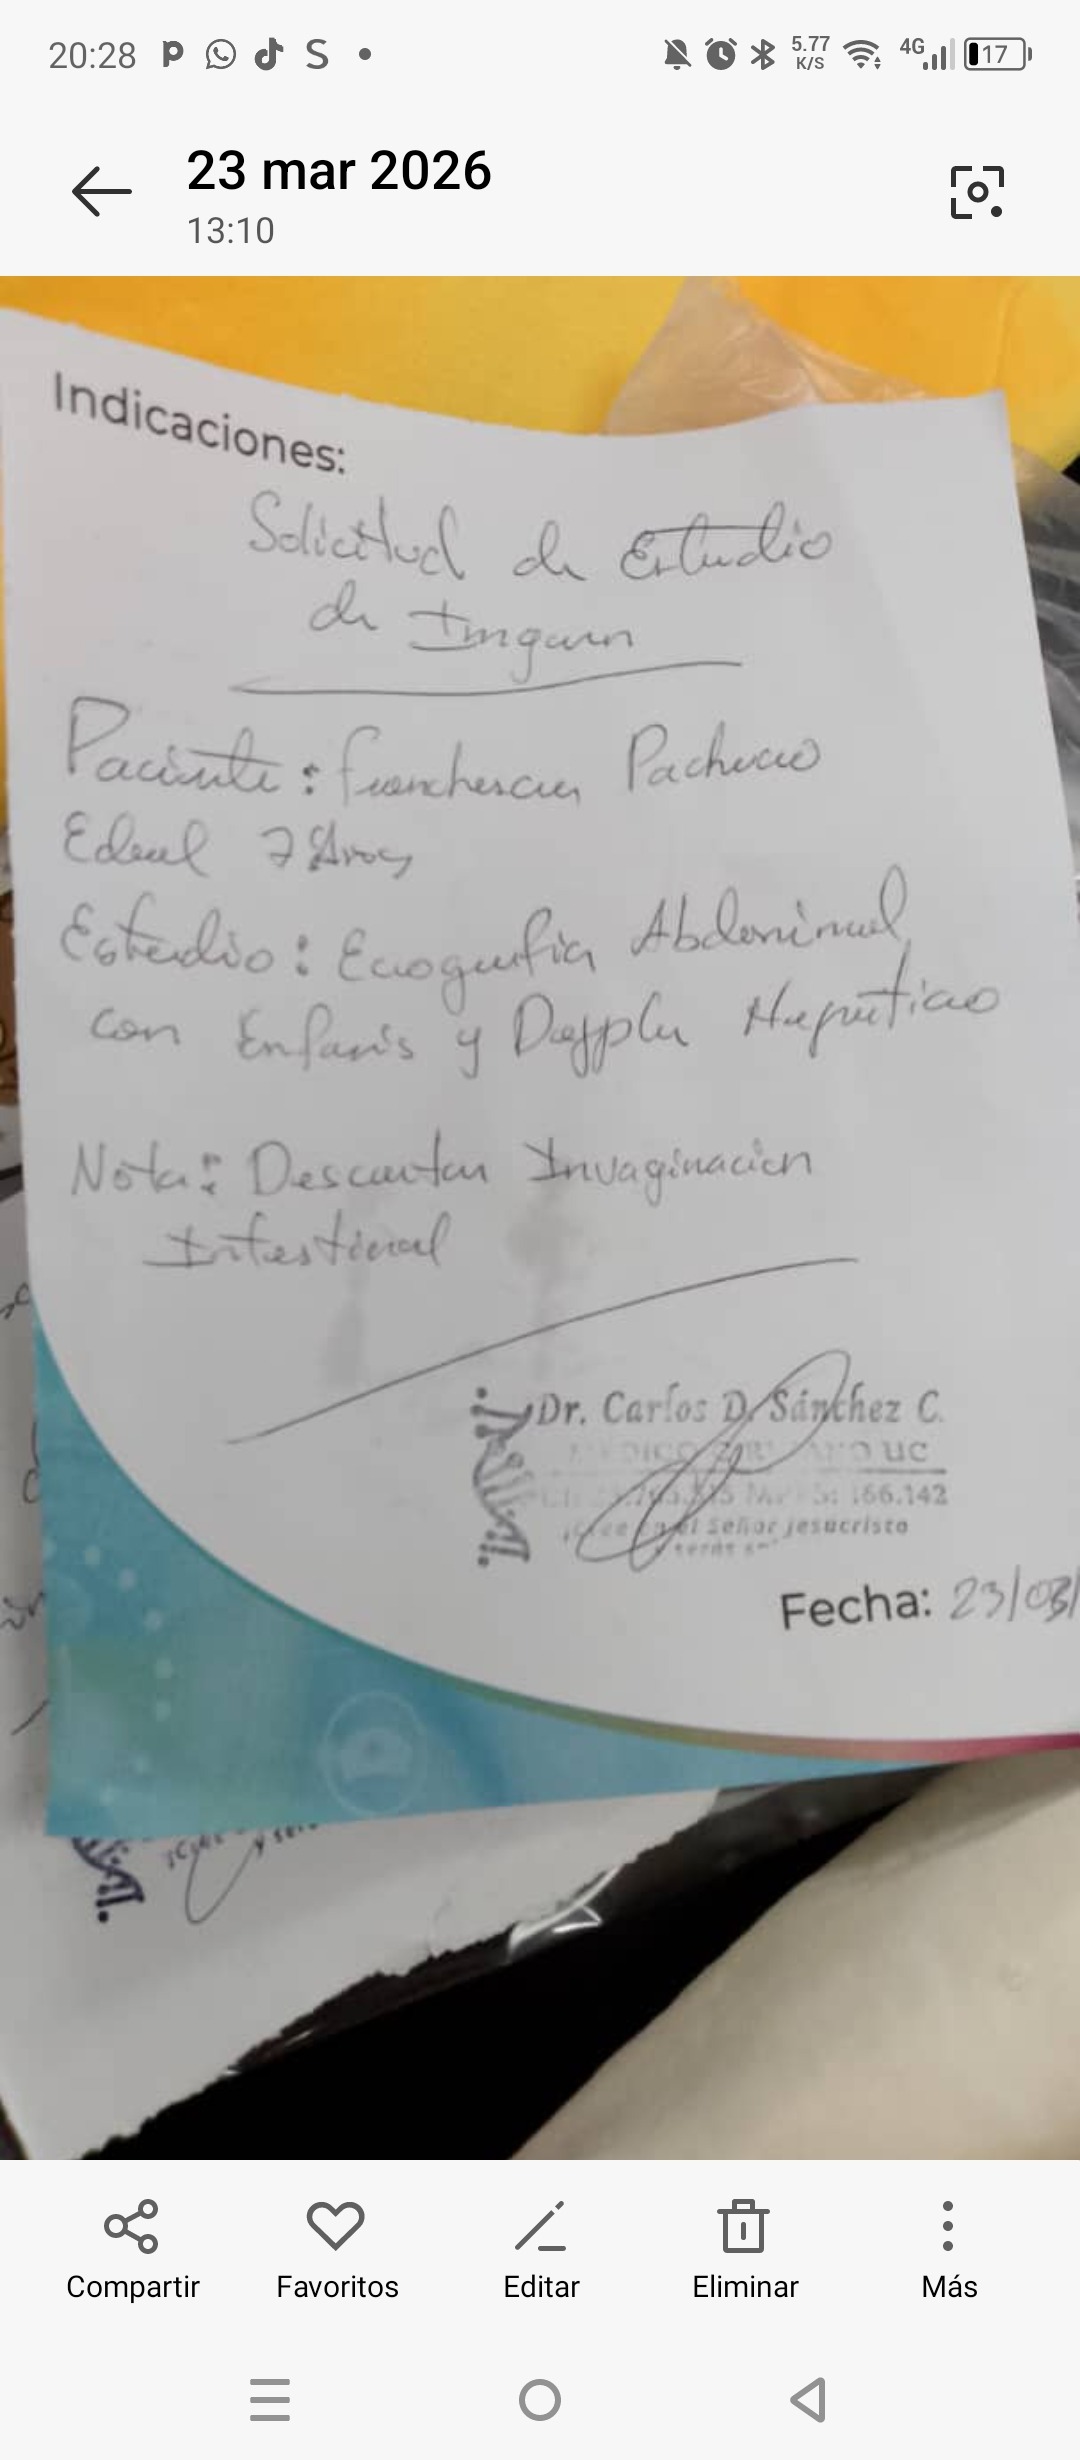 20:28
5.77 K/S
4G
17
23 mar 2026
13:10
Indicaciones:
Solicitud de Estudio
de Imgaen
Paciente: Franchesca Pacheco
Edad 7 Años
Estudio: Ecografia Abdominal
con Enfasis y Doppler Hepatico
Nota: Descartar Invaginacion
Intestinal
Dr. Carlos D. Sánchez C.
UC
166.142
el Señor Jesucristo
Fecha: 23/03/
Compartir
Favoritos
Editar
Eliminar
Más